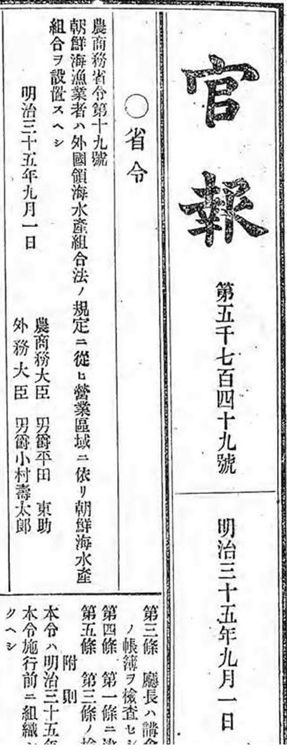 官報
第五千七百四十九號
明治三十五年九月一日
○省令
農商務省令第十九號
朝鮮海漁業者ハ外國領海水產組合法ノ規定ニ從ヒ營業區域ニ依リ朝鮮海水產
組合ヲ設置スヘシ
明治三十五年九月一日
農商務大臣 男爵平田 東助
外務大臣 男爵小村壽太郎
第三條 廳長ハ講會
ノ帳簿ヲ檢査セシ
第四條 第一條ニ違
第五條 第三條ノ檢
附則
本令ハ明治三十五年
本令施行前ニ組織シ
クヘシ